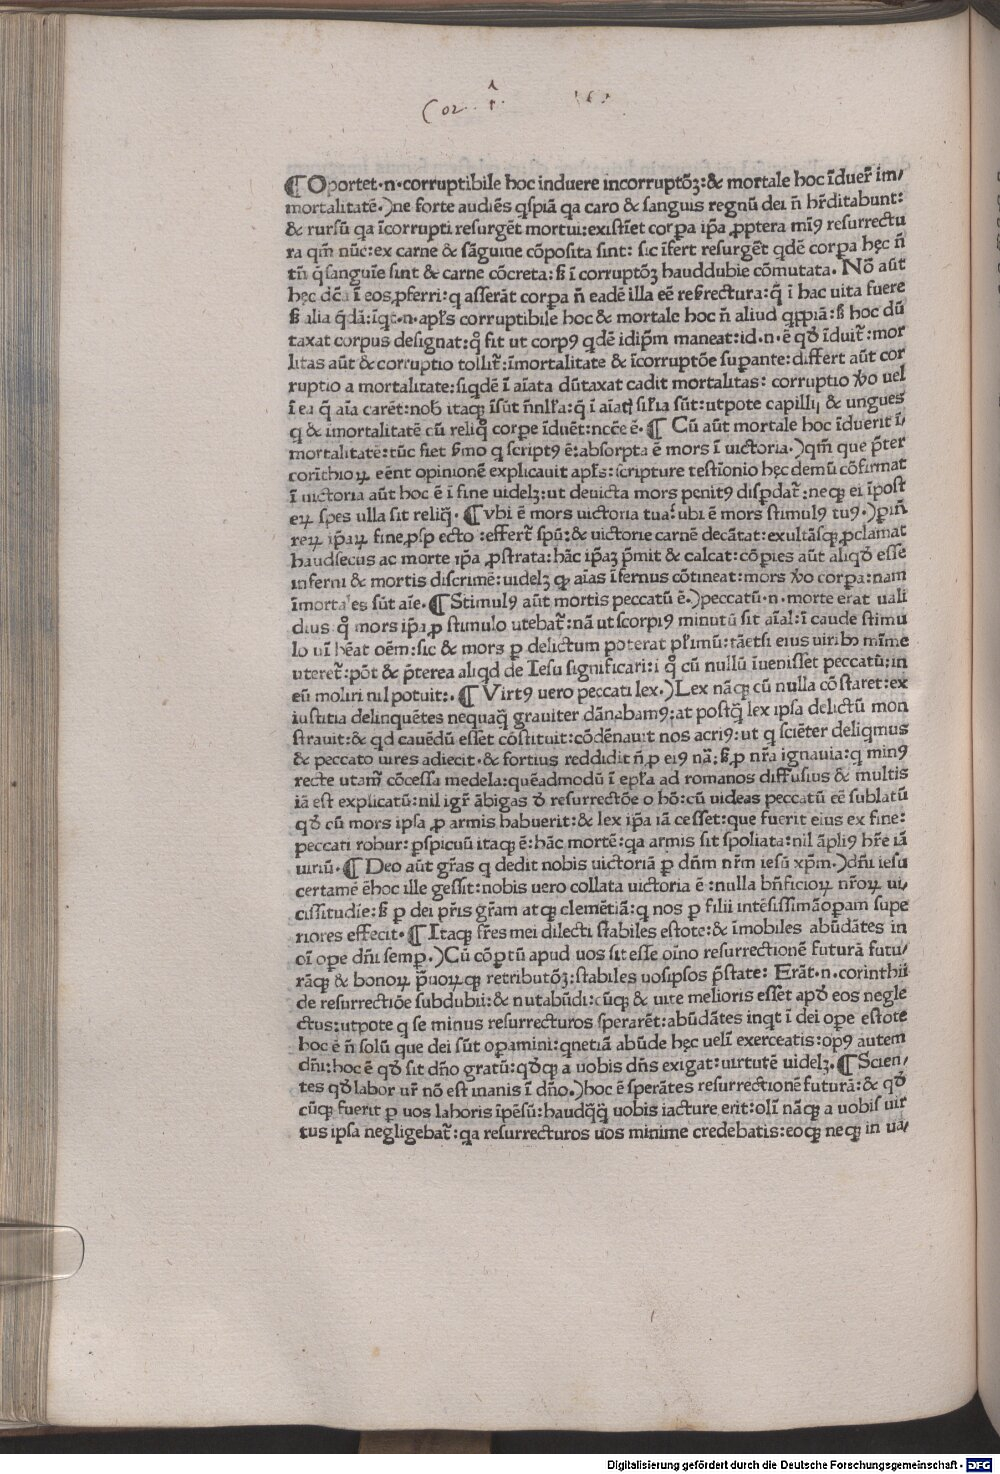 Cor. 1. 16
¶ Oportet·n·corruptibile hoc induere incorruptõꝫ:& mortale hoc ĩduer̃ im/
mortalitatẽ.)ne forte audiẽs qspiã qa caro & sanguis regnũ dei ñ hr̃ditabunt:
& rursũ qa ĩcorrupti resurgẽt mortui:existĩet corꝑa ip̃a ꝓpterea mĩꝰ resurrectu
ra qm̃ nũc:ex carne & sãguine cõposita sint: sic ĩfert resurgẽt qdẽ corꝑa hęc ñ
tñ q̃ sanguĩe sint & carne cõcreta:ß ĩ corruptõꝫ hauddubie cõmutata. Nõ aũt
hęc dc̃a ĩ eos ꝓferri:q asserãt corꝑa ñ eadẽ illa eẽ resũrectura:q̃ ĩ hac uita fuere
ß alia q̃dã:ĩqt·n·apl̃s corruptibile hoc & mortale hoc ñ aliud qppiã:ß hoc dũ
taxat corpus designat:q̊ fit ut corpꝰ qdẽ idip̃m maneat:id·n·ẽ qð ĩduit̃:mor
litas aũt & corruptio tollit̃:ĩmortalitate & ĩcorruptõe suꝑante:differt aũt cor
ruptio a mortalitate:siqdẽ ĩ aĩata dũtaxat cadit mortalitas: corruptio ỽo uel
ĩ ea q̃ aĩa carẽt:nob̃ itaqꝫ ĩsũt ñnl̃la:q̃ ĩ aĩatꝭ sil̃ia sũt:utpote capillĳ & ungues
q & ĩmortalitatẽ cũ reliq̊ corpe ĩduẽt:ncẽe ẽ.¶ Cũ aũt mortale hoc ĩduerit ĩ/
mortalitatẽ:tũc fiet ẜmo q scriptꝰ ẽ:absorpta ẽ mors ĩ uictoria.)qm̃ que p̃ter
corĩthioꝝ eẽnt opinionẽ explicauit apl̃s:scripture testĩonio hęc demũ cõfirmat
ĩ uictoria aũt hoc ẽ ĩ fine uidelꝫ:ut deuicta mors penitꝰ disꝑdat̃:neqꝫ ei ĩpost
eꝝ spes ulla sit reliq̃. ¶Vbi ẽ mors uictoria tua:ubi ẽ mors stimulꝰ tuꝰ.)ꝑiñ
reꝝ ip̃aꝝ fine ꝓspecto :effert̃ spũ:& uictorie carnẽ decãtat:exultãsqꝫ ꝓclamat
haudsecus ac morte ip̃a ꝓstrata:hãc ip̃aꝫ p̃mit & calcat:cõꝑies aũt aliqð esse
inferni & mortis discrimẽ:uidelꝫ qꝙ aĩas ĩfernus cõtineat:mors ỽo corꝑa:nam
ĩmortales sũt aĩe.¶Stimulꝰ aũt mortis peccatũ ẽ.)peccatũ·n·morte erat uali
dius q̊ mors ip̃a ꝓ stimulo utebat̃:nã ut scorpiꝰ minutũ sit aĩal:ĩ caude stimu
lo uĩ hẽat oẽm:sic & mors ꝑ delictum poterat pl̃imũ:tãetsi eius uiribꝰ mĩme
uteret̃:põt & p̃terea aliqd de Iesu significari:i q̊ cũ nullũ ĩuenisset peccatũ:in
eũ moliri nil potuit:.¶ Virtꝰ uero peccati lex.)Lex nãqꝫ cũ nulla cõstaret:ex
iustitia delinquẽtes nequaq̃ grauiter dãnabamꝰ:at postq̃ lex ipsa delictũ mon
strauit:& qd cauẽdũ esset cõstituit:cõdẽnauit nos acriꝰ:ut q sciẽter deliqmus
& peccato uires adiecit·& fortius reddidit ñ ꝓ eiꝰ nã:ß ꝓ nr̃a ignauia:q minꝰ
recte utam̃ cõcessa medela:quẽadmodũ ĩ epl̃a ad romanos diffusius & multis
iã est explicatũ:nil igr̃ ãbigas ð resurrectõe o hõ:cũ uideas peccatũ eẽ sublatũ
qð cũ mors ipsa ꝓ armis habuerit:& lex ip̃a iã cesset:que fuerit eius ex fine:
peccati robur: ꝑspicuũ itaqꝫ ẽ:hãc mortẽ:qa armis sit spoliata:nil ãpliꝰ hr̃e iã
uiriũ.¶ Deo aũt gr̃as q dedit nobis uictoriã ꝑ dñm nr̃m iesũ xp̃m.)dñi iesu
certamẽ ẽhoc ille gessit:nobis uero collata uictoria ẽ :nulla bñficioꝝ nr̃oꝝ ui,
cissitudĩe:ß ꝑ dei pr̃is gr̃am atqꝫ clemẽtiã:q nos ꝑ filii intẽsissimãoꝑam supe
riores effecit.¶ Itaqꝫ fr̃es mei dilecti stabiles estote:& ĩmobiles abũdãtes in
oĩ oꝑe dñi semꝑ.)Cũ cõꝑtũ apud uos sit esse oĩno resurrectionẽ futurã futu/
rãqꝫ & bonoꝝ p̃uoꝝqꝫ retributõꝫ:stabiles uosipsos p̃state: Erãt·n·corinthii
de resurrectiõe subdubii:& nutabũdi:cũqꝫ & uite melioris esset apð eos negle
ctus:utpote q se minus resurrecturos sperarẽt:abũdãtes inqt ĩ dei oꝑe estote
hoc ẽ ñ solũ que dei sũt oꝑamini:qnetiã abũde hęc uelĩ exerceatis:opꝰ autem
dñi:hoc ẽ qð sit dño gratũ:qðqꝫ a uobis dñs exigat:uirtutẽ uidelꝫ.¶Scien/
tes qð labor ur̃ nõ est inanis ĩ dño.)hoc ẽ sperãtes resurrectionẽ futurã:& qð
cũqꝫ fuerit ꝓ uos laboris ĩpẽsũ:haudq̃q̃ uobis iacture erit:olĩ nãqꝫ a uobis uir
tus ipsa negligebat̃:qa resurrecturos uos minime credebatis:eoqꝫ neqꝫ in ua/
Digitalisierung gefördert durch die Deutsche Forschungsgemeinschaft - DFG